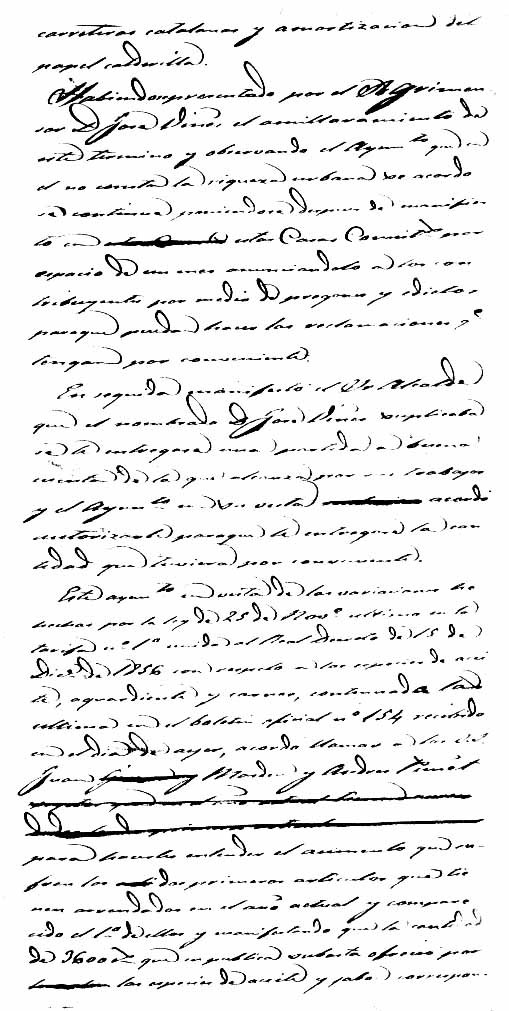 carreteras catalanas y amortizacion del
papel calderilla.
Habiendo presentado por el Agrimen
sor D. José Viñes el amillaramiento de
este termino y observando el Ayun.to que en
el no consta la riqueza urbana se acordo
se continue poniendose despues de manifies
to en estas Casas Consist.s por
espacio de un mes anunciandolo a los con
tribuyentes por medio de pregones y edictos
paraque puedan hacer las reclamaciones q.e
tengan por conveniente.
En seguida manifestó el Sr. Alcalde
que el nombrado D. José Viñes suplicaba
se le entregase una partida a buena
cuenta de la que alcanza por sus trabajos
y el Ayun.to en su vista acordó
autorizarle paraque le entregara la can
tidad que tuviera por conveniente.
Este ayun.to en vista de las variaciones he
chas por la ley de 25 de Nov.e ultimo en la
tarifa nº 1º unida al Real Decreto de 15 de
Dic.e de 1856 con respecto a las especies de acei
te, aguardiente y carnes, contenida
ultima en el boletin oficial nº 154 recibido
en el dia de ayer, acordó llamar a los
Juan y Andres
para hacerles entender el aumento que su
fren los dos primeros articulos que tie
nen arrendados en el año actual y compare
cido el 1º de ellos y manifestado que la cantidad
de 3600 que en publica subasta ofreció por
las especies de aceite y jabon correspon-